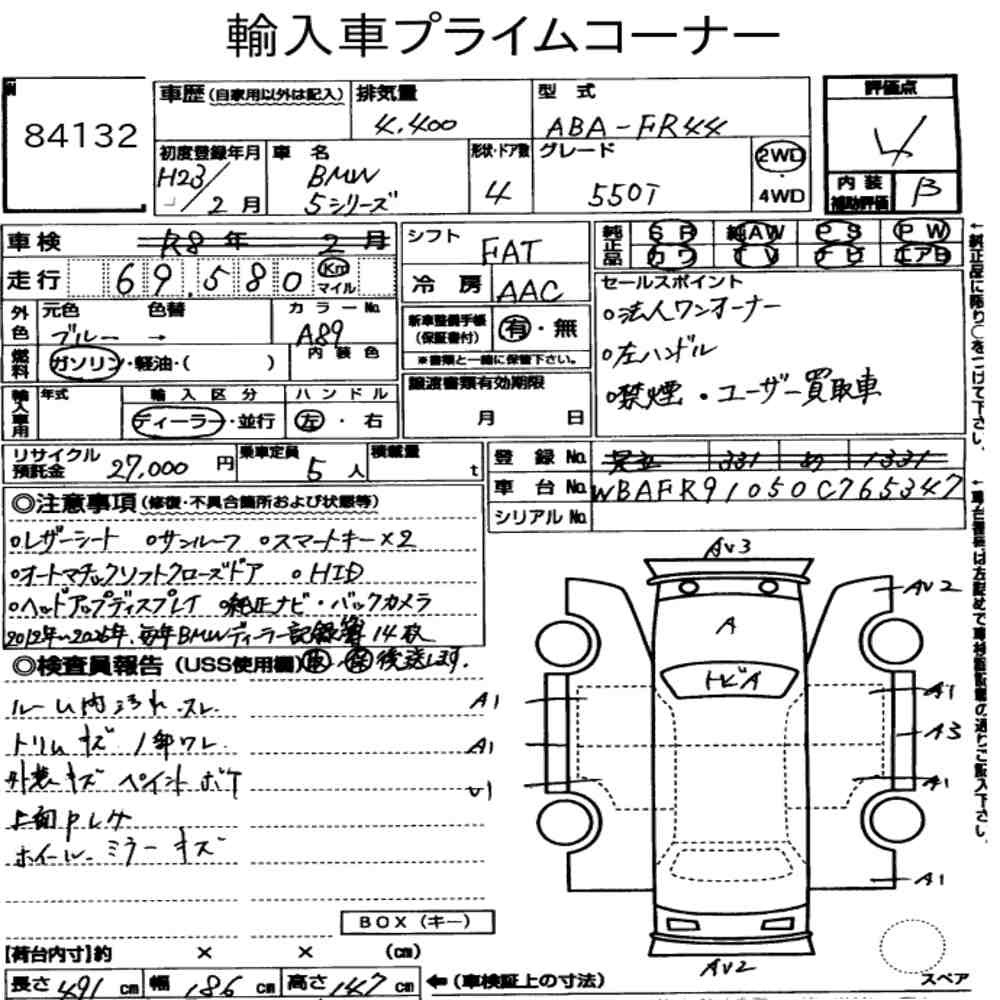 輸入車プライムコーナー
84132
車歴 (自家用以外は記入)
排気量
4.400
型式
ABA-FR44
評価点
4
初度登録年月
H23/2月
車名
BMW
5シリーズ
形状・ドア数
4
グレード
550I
2WD
・
4WD
内装
補助評価
B
車検 R8年 2月
走行 69.580 Km
マイル
外色
元色 色替 カラーNo.
ブルー → A89
燃料
ガソリン・軽油・( )
内装色
輸入車用
年式
輸入区分
ディーラー・並行
ハンドル
左・右
リサイクル
預託金 27,000 円
乗車定員 5人
積載量 t
シフト
FAT
冷房 AAC
新車整備手帳
(保証書付)
有・無
※書類と一緒に保管下さい。
譲渡書類有効期限
月 日
純正品
SR 純AW PS PW
カワ TV ナビ エアB
セールスポイント
○法人ワンオーナー
○左ハンドル
○禁煙・ユーザー買取車
登録No. 足立 331 め 1331
車台No. WBAFR91050C765347
シリアルNo.
←純正品に限り○をつけて下さい。
◎注意事項(修復・不具合箇所および状態等)
○レザーシート ○サンルーフ ○スマートキー×2
○オートマチックソフトクローズドア ○HID
○ヘッドアップディスプレイ ○純正ナビ・バックカメラ
2012年〜2025年、毎年BMWディーラー記録簿14枚
◎検査員報告(USS使用欄) 取 保 後送します。
ルーム内汚れ.スレ
トリムキズ 1部ワレ
外装キズ ペイントボケ
上面Pレケ
ホイール.ミラーキズ
BOX(キー)
AV3
AV2
A
トビA
A1
A1
A1
A3
U1
A1
A1
AV2
スペア
[荷台内寸]約 × × (cm)
長さ 491 cm 幅 186 cm 高さ 147 cm
←(車検証上の寸法)